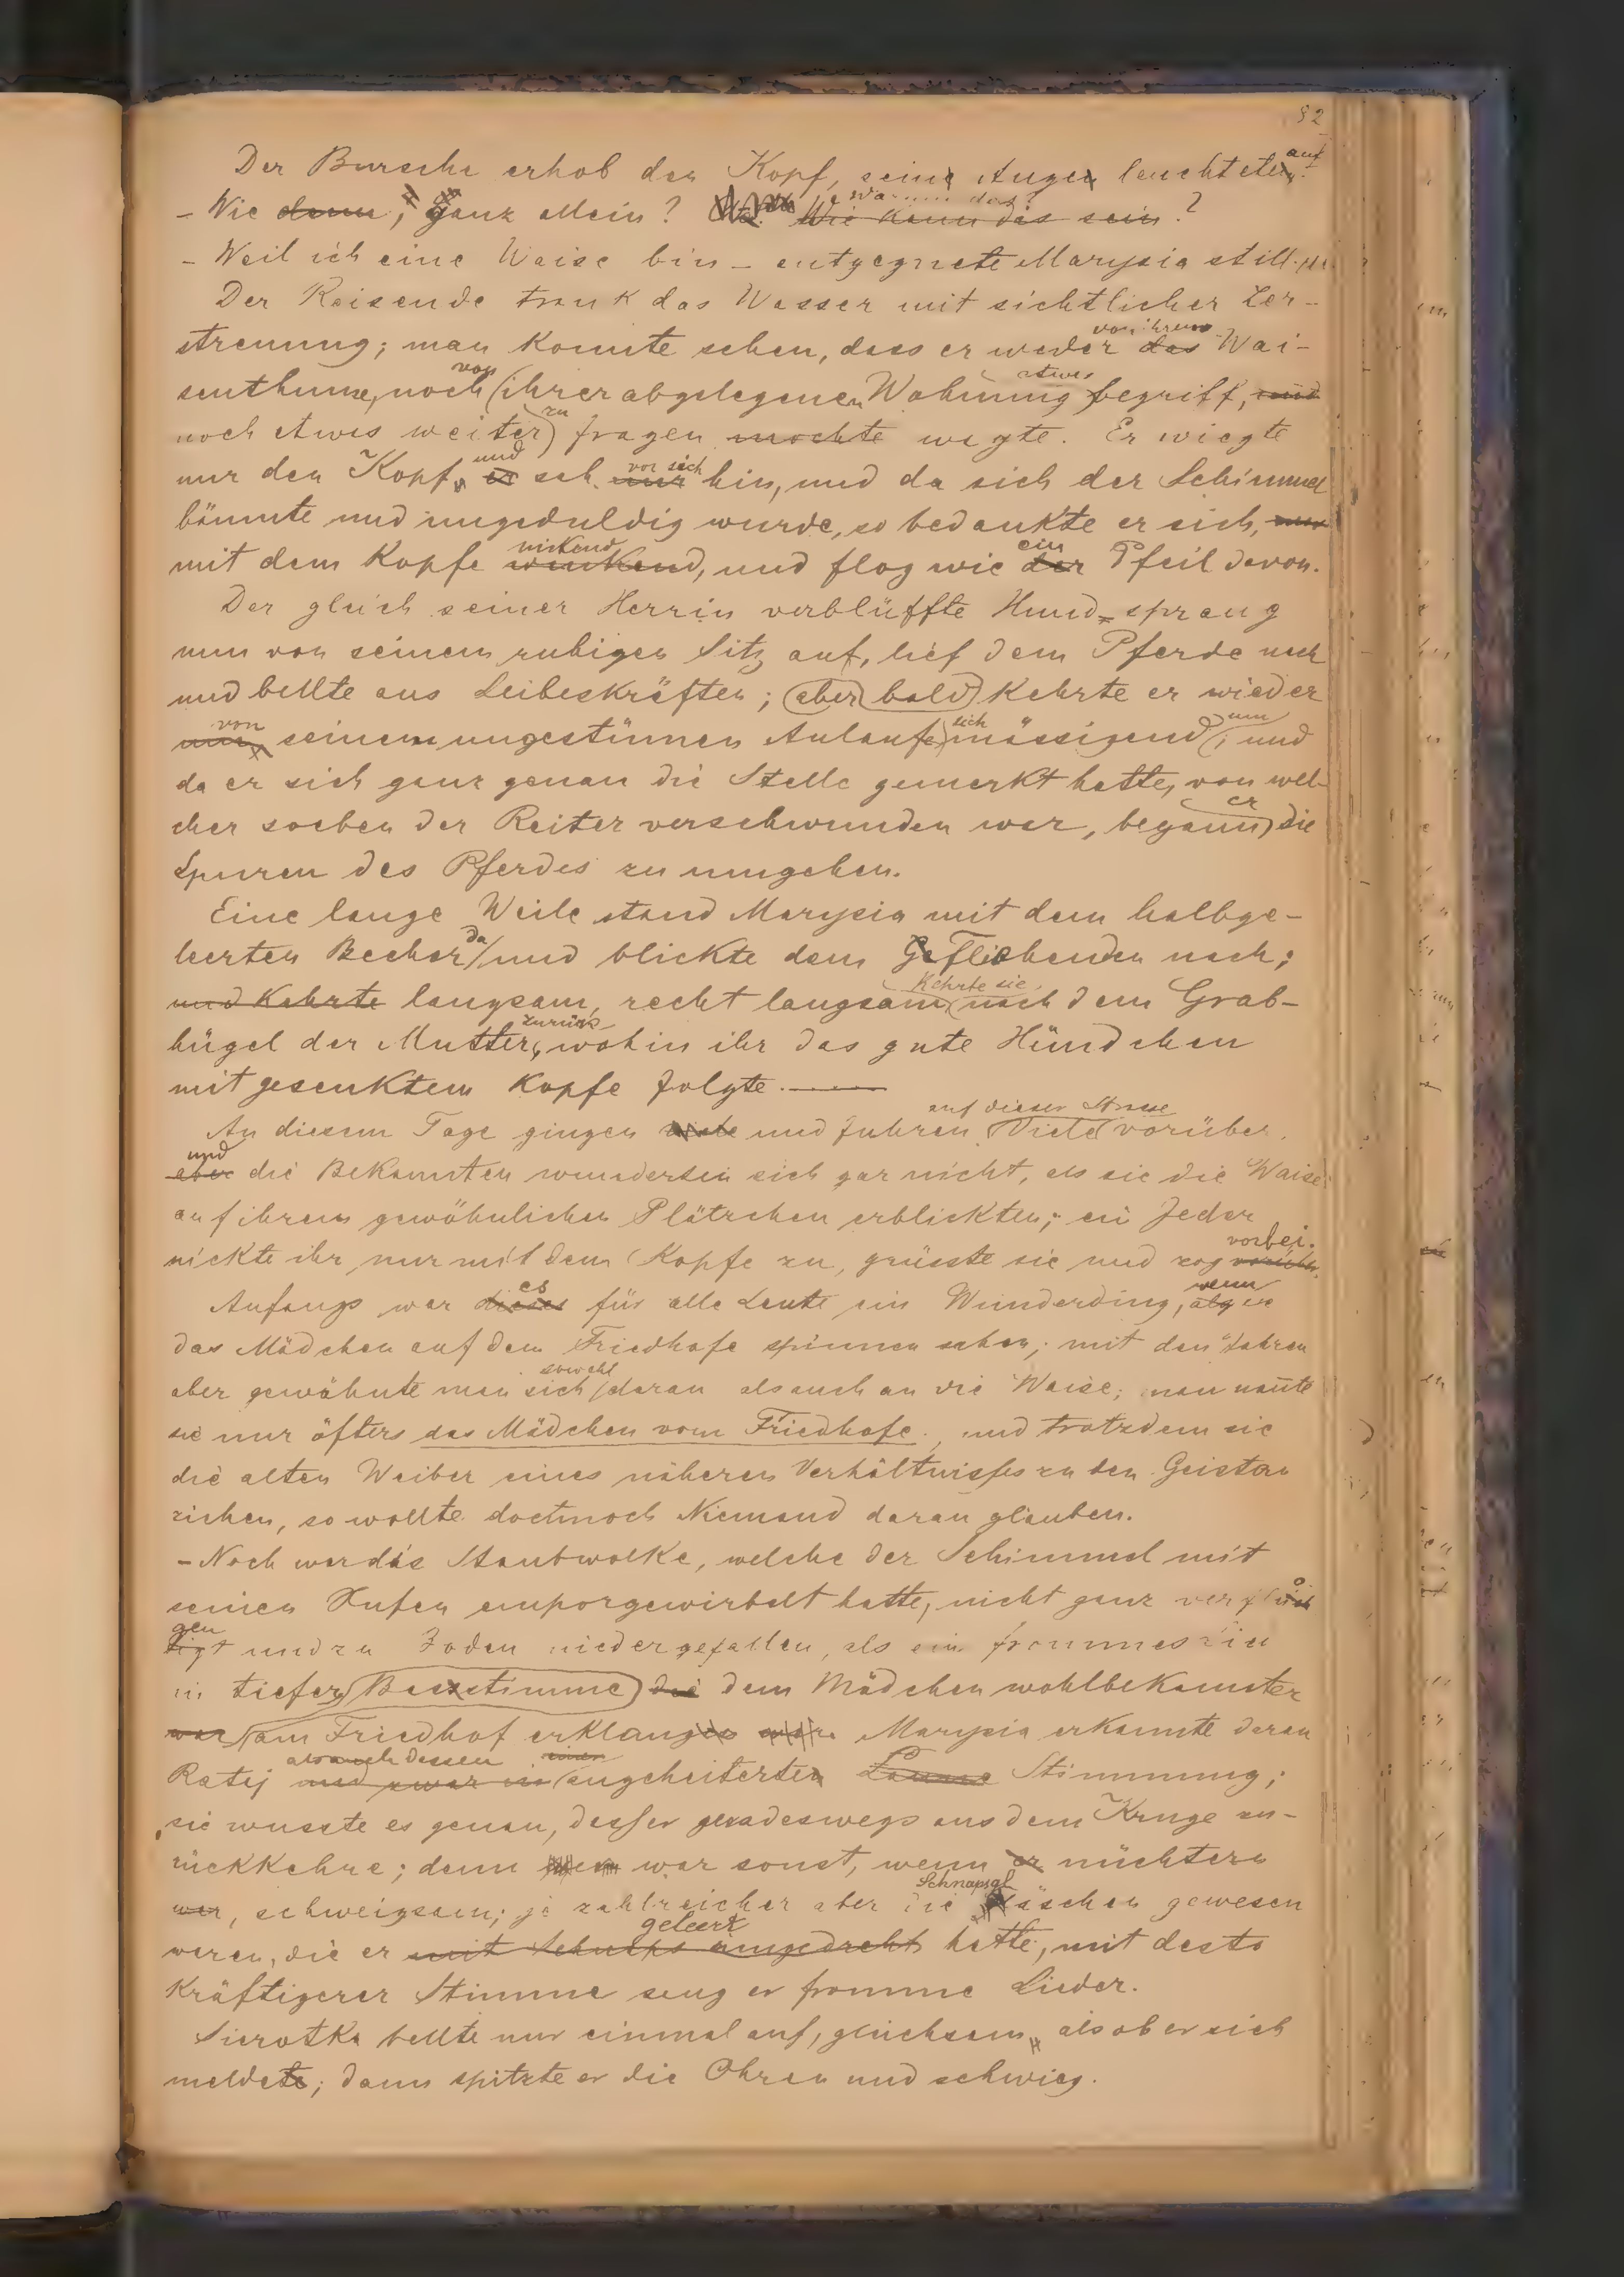 82
Der Bursche erhob den Kopf, seine Augen leuchteten auf.
- Wie denn, ganz allein? Wie kann das sein?
- Weil ich eine Waise bin - entgegnete Marysia still.
Der Reisende trank das Wasser mit sichtlicher Zer-
streuung; man konnte sehen, dass er weder das von ihrem Wai-
senthume, noch von ihrer abgelegenen Wohnung etwas begriff, und
noch etwas weiter zu fragen mochte wagte. Er wiegte
nur den Kopf, er und sah nur vor sich hin, und da sich der Schimmel
bäumte und ungeduldig wurde, so bedankte er sich, nur
mit dem Kopfe winkend nickend, und flog wie der ein Pfeil davon.
Der gleich seiner Herrin verblüffte Hund sprang
nun von seinem ruhigen Sitz auf, lief dem Pferde nach
und bellte aus Leibeskräften; aber bald kehrte er wieder
von seinem ungestümen Anlaufe sich mässigend um; und
da er sich ganz genau die Stelle gemerkt hatte, von wel-
cher soeben der Reiter verschwunden war, begann er die
Spuren des Pferdes zu umgehen.
Eine lange Weile stand Marysia mit dem halbge-
leerten Becher da und blickte dem Fliehenden nach;
und kehrte langsam, recht langsam kehrte sie nach dem Grab-
hügel der Mutter zurück, wohin ihr das gute Hündchen
mit gesenktem Kopfe folgte.
An diesem Tage gingen viele und fuhren auf dieser Strasse Viele vorüber,
aber und die Bekannten wunderten sich gar nicht, als sie die Waise
auf ihrem gewöhnlichen Plätzchen erblickten; ein Jeder
nickte ihr nur mit dem Kopfe zu, grüsste sie und zog vorüber vorbei.
Anfangs war dieses es für alle Leute ein Wunderding, wenn sie
das Mädchen auf dem Friedhofe spinnen sahen; mit den Jahren
aber gewöhnte man sich sowohl daran als auch an die Waise; man nannte
sie nur öfters das Mädchen vom Friedhofe, und trotzdem sie
die alten Weiber eines näheren Verhältnisses zu den Geistern
ziehen, so wollte doch noch Niemand daran glauben.
- Noch war die Staubwolke, welche der Schimmel mit
seinen Hufen emporgewirbelt hatte, nicht ganz verflo
gen und zu Boden niedergefallen, als ein frommes
in tiefer Bassstimme die dem Mädchen wohlbekannter
war am Friedhof erklang Marysia erkannte daran
Ratej und zwar in als auch dessen angeheiterten Laune Stimmung;
sie wusste es genau, dass er geradeswegs aus dem Kruge zu-
rückkehre; denn war sonst, wenn er nüchtern
war, schweigsam; je zahlreicher aber die Schnapsgläschen gewesen
waren, die er mit Schnaps geleert hatte, mit desto
kräftigerer Stimme sang er fromme Lieder.
Sierotka bellte nur einmal auf, gleichsam als ob er sich
meldete; dann spitzte er die Ohren und schwieg.